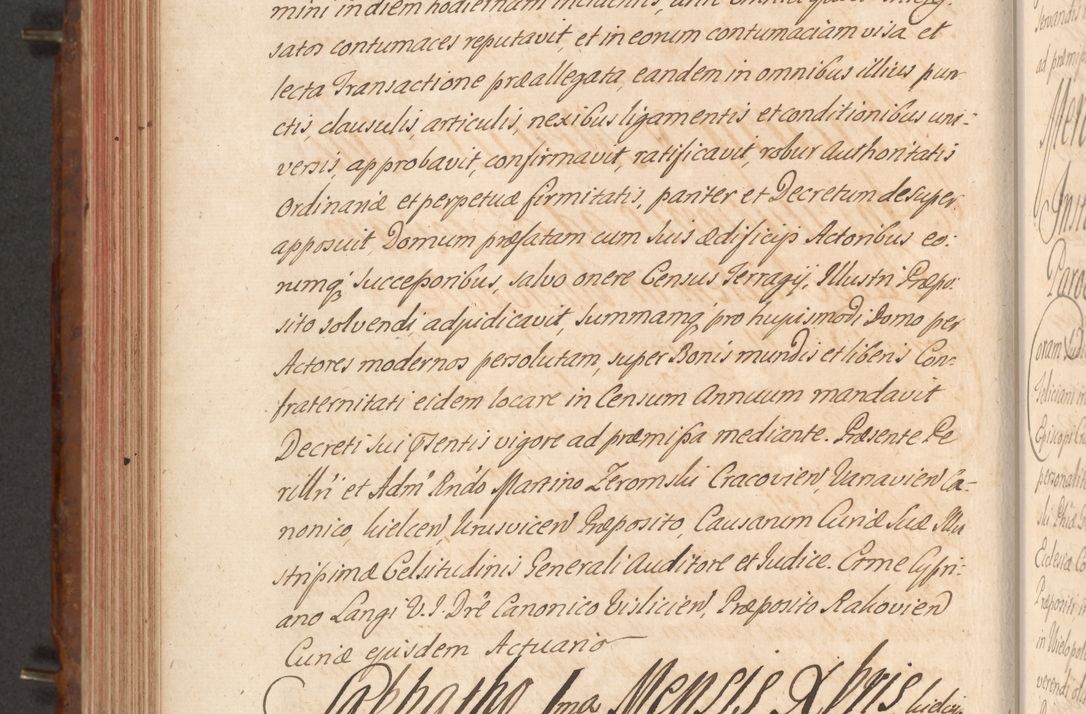 mini in diem hodiernam
sator contumaces reputavit, et in eorum contumaciam visa et
lecta Transactione præallegata, eandem in omnibus illius pun-
ctis, clausulis, articulis, nexibus ligamentis et conditionibus uni-
versis, approbavit, confirmavit, ratificavit, robur Authoritatis
Ordinariæ et perpetuæ firmitatis, pariter et Decretum desuper
apposuit, Domum præfatam cum suis ædificijs Actoribus eo-
rumq́ue successoribus, salvo onere Census Terragij, Illustri Præpo-
sito solvendi adjudicavit, Summamq́ pro hujusmodi Domo per
Actores modernos persolutam, super Bonis mundis et liberis Con-
fraternitati eidem locare in Censum Annuum mandavit
Decreti sui p̃sentis vigore ad præmissa mediante. Præsente Pe
rillrī et Admˢ Rndo Martino Zeromski Cracovien̄, Varsavien̄ Ca-
nonico, Kielcen̄ Præposito, Causarum Curiæ Suæ Illu
strissimæ Celsitudinis Generali Auditore et Judice. Erme Cypri-
ano Langi V. J. Dre Canonico Vislicien̄, Præposito Rakovien̄
Curiæ ejusdem Actuario
Sabbatho 1ma Mensis Xbris
Mens
Paro
coram
Episcopi
personalit
in Wielopol